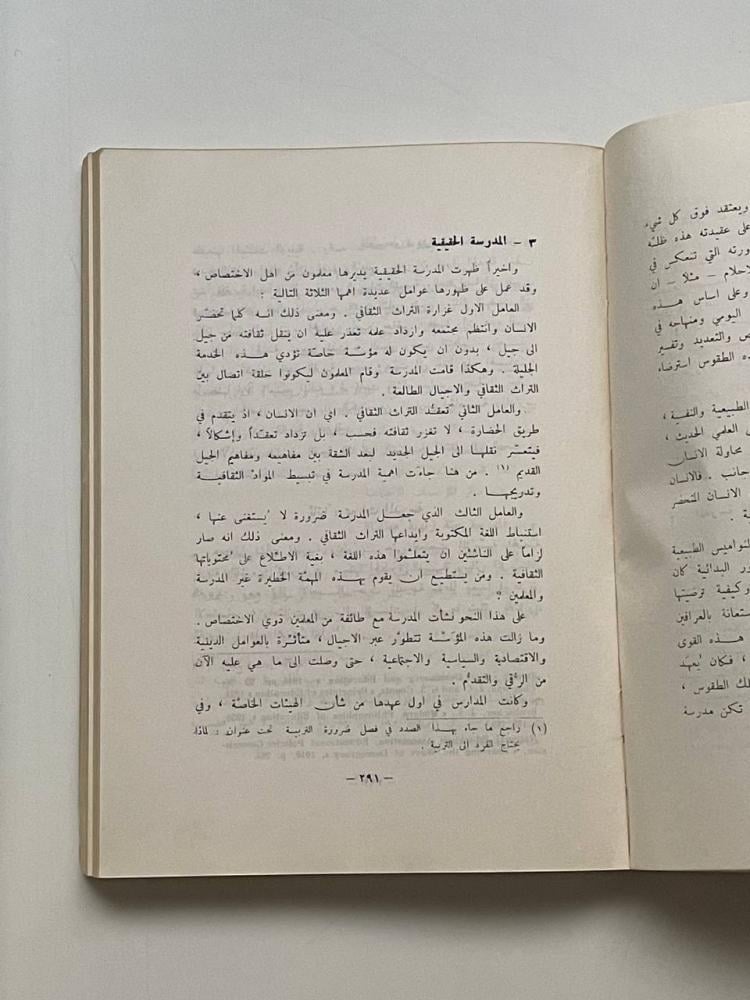 ويعتقد فوق كل شيء
على عقيدته هذه ظلته
ورته التي تنعكس في
لاحلام – مثلاً – ان
وعلى اساس هـذه
اليومي ومنهاجه في
ض والتعديد وتفسير
ه الطقوس استرضاء
الطبيعية والنفسية ،
العلمي الحديث ،
محاولة الانسان
جانب . فالانسان
الانسان المتحضر
ة .
لنواميس الطبيعية
ور البدائية كان
وكيفية ترضيتها
ستعانة بالعرافين
هـذه القوى
، فكان يُعهد
لك الطقوس ،
تكن مدرسة
٣ – المدرسة الحقيقية
واخيراً ظهرت المدرسة الحقيقية يديرها معلمون من اهل الاختصاص ،
وقد عمل على ظهورها عوامل عديدة اهمها الثلاثة التالية :
العامل الاول غزارة التراث الثقافي . ومعنى ذلك انـه كلما تحضّر
الانسان وانتظم مجتمعه وازداد علمه تعذر عليه ان ينقل ثقافته من جيل
الى جيل ، بدون ان يكون له مؤسّسة خاصّة تؤدي هـذه الخدمة
الجليلة . وهكذا قامت المدرسة وقام المعلمون ليكونوا حلقة اتصال بين
التراث الثقافي والاجيال الطالعة .
والعامل الثاني تعقّد التراث الثقافي . اي ان الانسان ، اذ يتقدم في
طريق الحضارة ، لا تغزر ثقافته فحسب ، بل تزداد تعقّداً وإشكالاً ،
فيتعسّر نقلهـا الى الجيل الجديد لبعد الشقة بين مفاهيمه ومفاهيم الجيل
القديم (١) . من هنا جاءت اهمية المدرسة في تبسيط المواد الثقافيـة
وتدريجهـا .
والعامل الثالث الذي جعـل المدرسة ضرورة لا يُستغنى عنها ،
استنباط اللغة المكتوبة وايداعها التراث الثقافي . ومعنى ذلك انه صار
لزاماً على الناشئين ان يتعلّموا هذه اللغة ، بغية الاطّلاع على محتوياتها
الثقافية . ومن يستطيع ان يقوم بهـذه المهمّة الخطيرة غير المدرسة
والمعلمين ؟
على هذا النحو نشأت المدرسة مع طائفة من المعلمين ذوي الاختصاص .
وما زالت هذه المؤسّسة تتطوّر عبر الاجيال ، متأثرة بالعوامل الدينية
والاقتصادية والسياسية والاجتماعية ، حتى وصلت الى ما هي عليه الآن
من الرُّقي والتقدُّم .
وكانت المدارس في اول عهدها من شأن الهيئات الخاصّة ، وفي
(١) راجع ما جاء بهـذا الصدد في فصل ضرورة التربيـة تحت عنوان : لماذا
يحتاج الفرد الى التربية .
– ٢٩١ –